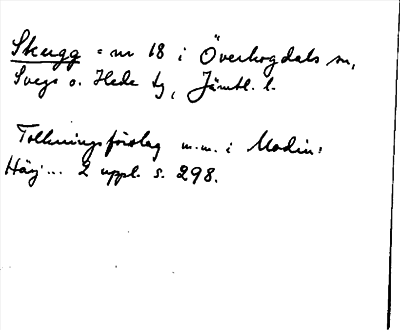 Skugg = nr 18 i Överhogdals sn,
Svegs o. Hede tg, Jämtl. l.
Tolkningsförslag m.m. i Modin:
Härj... 2 uppl. s. 298.